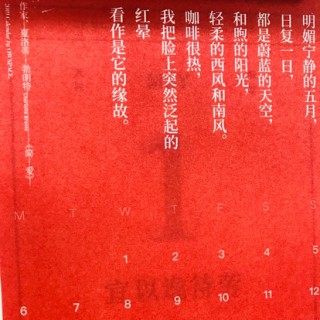 明媚宁静的五月，
日复一日，
都是蔚蓝的天空，
和煦的阳光，
轻柔的西风和南风。
咖啡很热，
我把脸上突然泛起的
红晕
看作是它的缘故。
作家：夏洛蒂·勃朗特《简·爱》
M T W T F S S
1 2 3 4 5
6 7 8 9 10 11 12